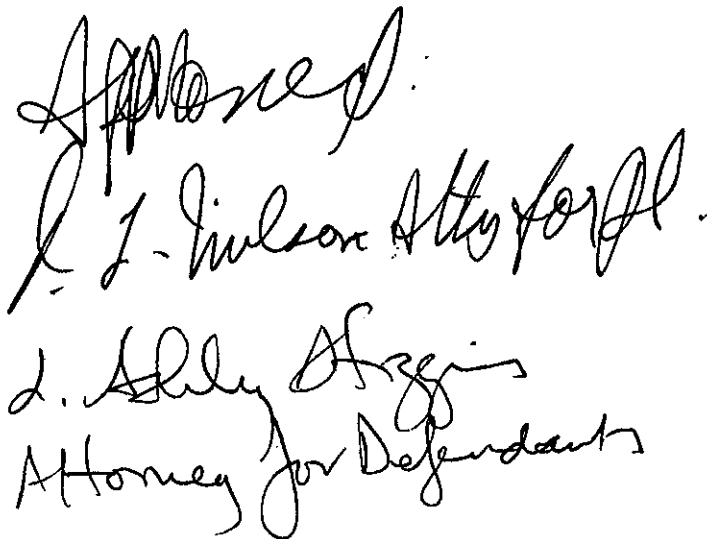 Approved.
L. Nelson Atty for Pl.
L. Ashley Higgins
Attorney for Defendants